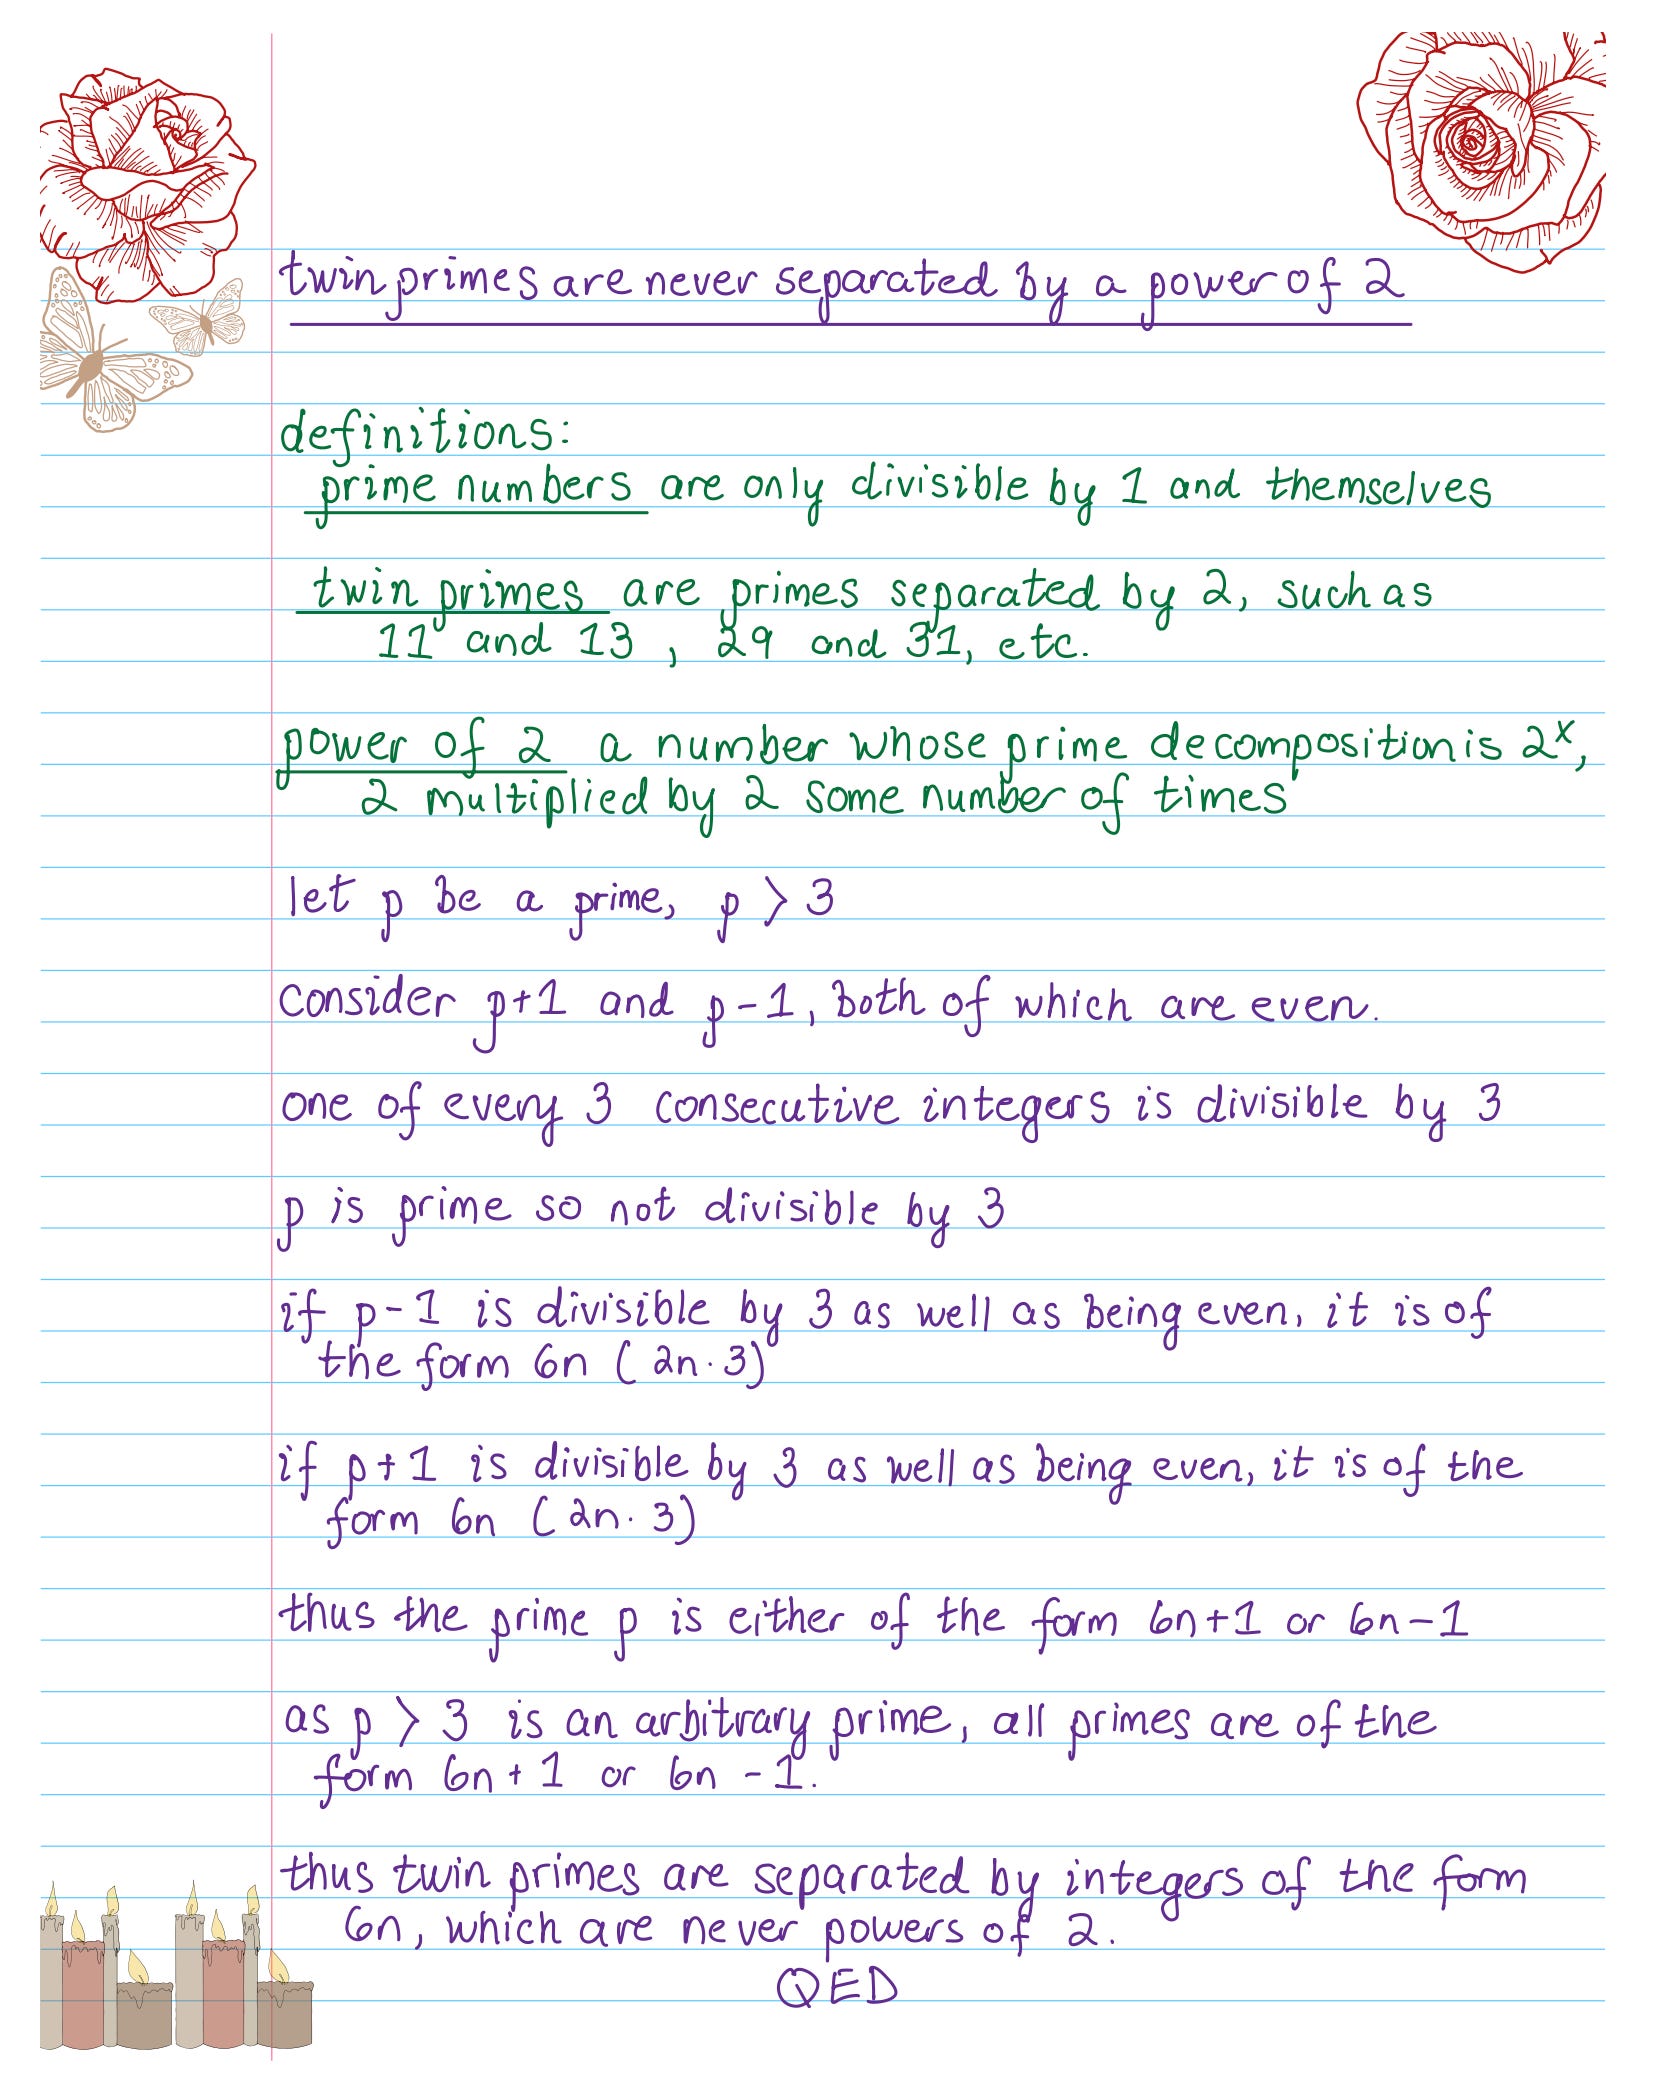 twin primes are never separated by a power of 2
definitions:
prime numbers are only divisible by 1 and themselves
twin primes are primes separated by 2, such as
11 and 13, 29 and 31, etc.
power of 2 a number whose prime decomposition is 2ˣ,
2 multiplied by 2 some number of times
let p be a prime, p > 3
consider p+1 and p-1, both of which are even.
one of every 3 consecutive integers is divisible by 3
p is prime so not divisible by 3
if p-1 is divisible by 3 as well as being even, it is of
the form 6n (2n·3)
if p+1 is divisible by 3 as well as being even, it is of the
form 6n (2n·3)
thus the prime p is either of the form 6n+1 or 6n-1
as p > 3 is an arbitrary prime, all primes are of the
form 6n+1 or 6n-1.
thus twin primes are separated by integers of the form
6n, which are never powers of 2.
QED